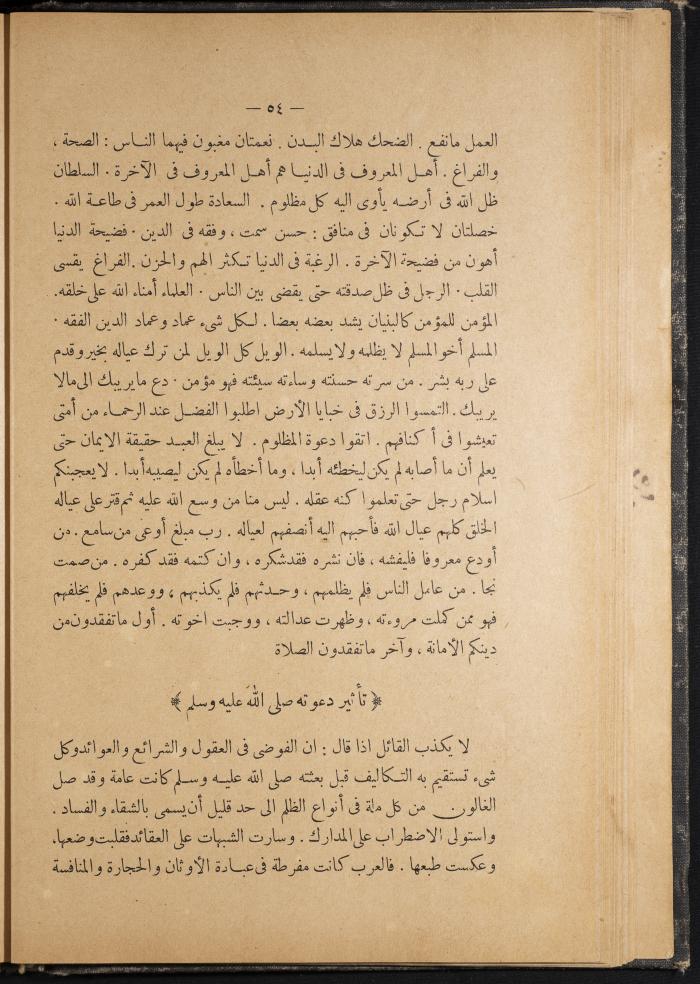 — ٥٤ —
العمل مانفع . الضحك هلاك البدن . نعمتان مغبون فيهما الناس : الصحة ،
والفراغ . أهل المعروف فى الدنيا هم أهل المعروف فى الآخرة . السلطان
ظل الله فى أرضه يأوى اليه كل مظلوم . السعادة طول العمر فى طاعة الله .
خصلتان لا تكونان فى منافق : حسن سمت ، وفقه فى الدين . فضيحة الدنيا
أهون من فضيحة الآخرة . الرغبة فى الدنيا تكثر الهم والحزن . الفراغ يقسى
القلب . الرجل فى ظل صدقته حتى يقضى بين الناس . العلماء أمناء الله على خلقه.
المؤمن للمؤمن كالبنيان يشد بعضه بعضا . لكل شىء عماد وعماد الدين الفقه .
المسلم أخو المسلم لا يظلمه ولا يسلمه . الويل كل الويل لمن ترك عياله بخير وقدم
على ربه بشر . من سرته حسنته وساءته سيئته فهو مؤمن . دع ما يريبك الى مالا
يريبك . التمسوا الرزق فى خبايا الأرض اطلبوا الفضل عند الرحماء من أمتى
تعيشوا فى أكنافهم . اتقوا دعوة المظلوم . لا يبلغ العبد حقيقة الايمان حتى
يعلم أن ما أصابه لم يكن ليخطئه أبدا ، وما أخطأه لم يكن ليصيبه أبدا . لا يعجبنكم
اسلام رجل حتى تعلموا كنه عقله . ليس منا من وسع الله عليه ثم قتر على عياله
الخلق كلهم عيال الله فأحبهم اليه أنصفهم لعياله . رب مبلغ أوعى من سامع . من
أودع معروفا فليفشه ، فان نشره فقد شكره ، وان كتمه فقد كفره . من صمت
نجا . من عامل الناس فلم يظلمهم ، وحدثهم فلم يكذبهم ، ووعدهم فلم يخلفهم
فهو ممن كملت مروءته ، وظهرت عدالته ، ووجبت اخوته . أول ما تفقدون من
دينكم الأمانة ، وآخر ما تفقدون الصلاة
﴿ تأثير دعوته صلى الله عليه وسلم ﴾
لا يكذب القائل اذا قال : ان الفوضى فى العقول والشرائع والعوائد وكل
شىء تستقيم به التكاليف قبل بعثته صلى الله عليه وسلم كانت عامة وقد صل
الغالون من كل ملة فى أنواع الظلم الى حد قليل أن يسمى بالشقاء والفساد .
واستولى الاضطراب على المدارك . وسارت الشبهات على العقائد فقلبت وضعها،
وعكست طبعها . فالعرب كانت مفرطة فى عبادة الأوثان والحجارة والمنافسة